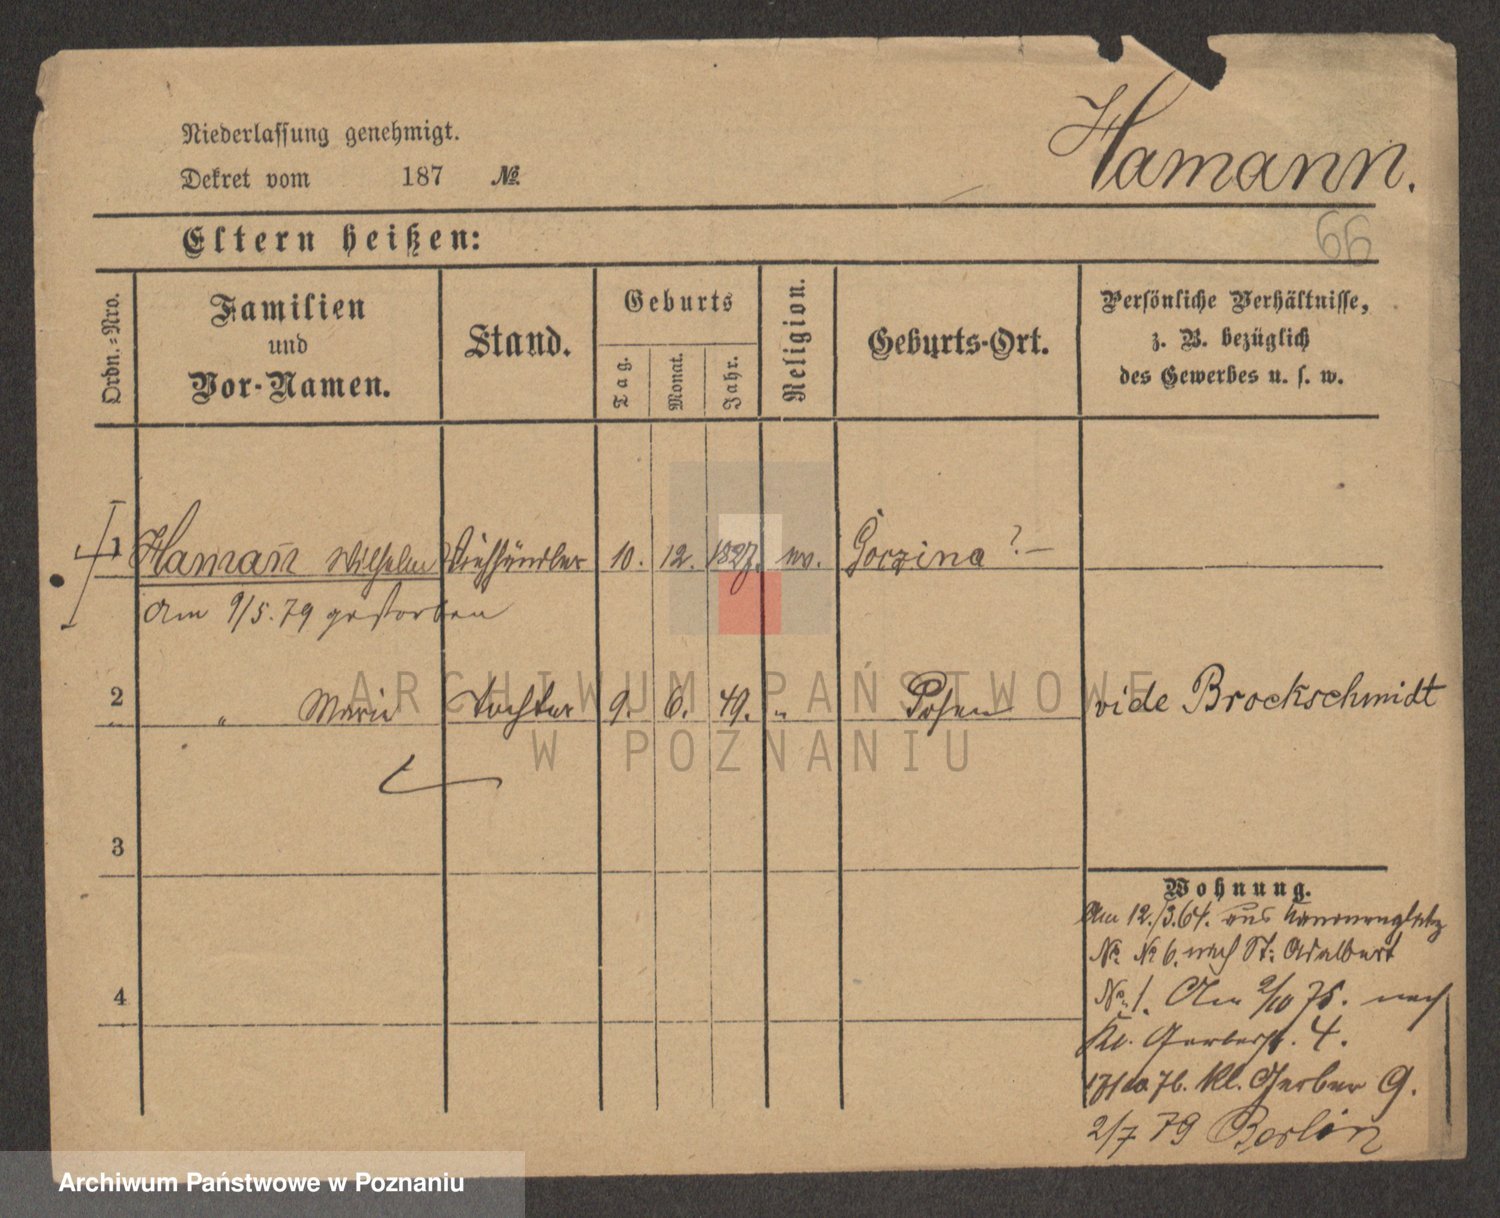 Niederlassung genehmigt.
Dekret vom 187 №
Hamann.
66
Eltern heißen:
Ordn.=Nro.
Familien
und
Vor-Namen.
Stand.
Geburts
Tag.
Monat.
Jahr.
Religion.
Geburts-Ort.
Persönliche Verhältnisse,
z. B. bezüglich
des Gewerbes u. s. w.
1 Hamann̄ Wilhelm Viehhändler 10. 12. 1827. ev. Gorzina ? –
Am 9/5. 79 gestorben
2 " Marie Tochter 9. 6. 49. " Posen vide Brockschmidt
3
4
Wohnung.
Am 12./3.64. aus Kanonenplatz
№ 6. nach St: Adalbert
№ 1. Am 2/10 75. nach
Kl. Gerberst. 4.
76. Kl. Gerber 9.
2/7 79 Berlin
ARCHIWUM PAŃSTWOWE
W POZNANIU
Archiwum Państwowe w Poznaniu